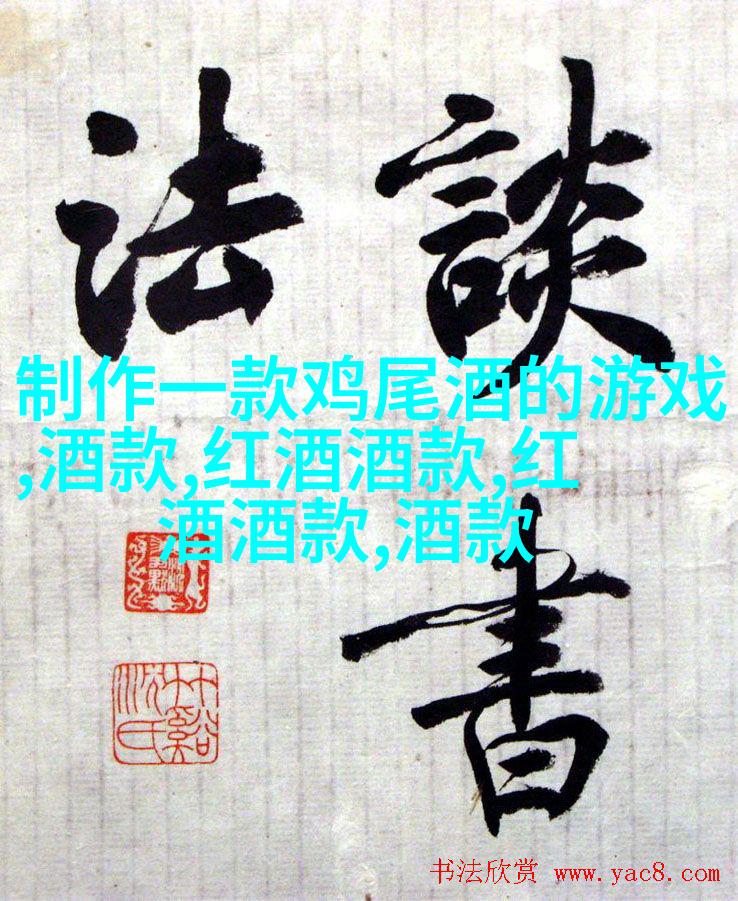 談書
法
制作一款鸡尾酒的游戏
,酒款,红酒酒款,红
酒酒款,酒款
书法欣赏 www.yac8.com